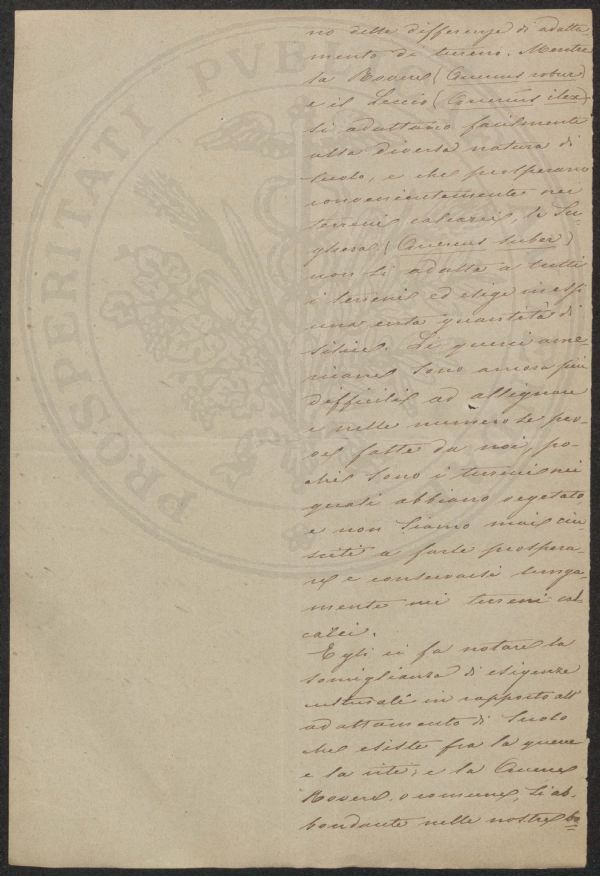 PROSPERITATI PVBLI
no delle differenze di adatta-
mento di terreno. Mentre
la Rovere (Quercus robur)
e il Leccio (Quercus ilex)
si adattano facilmente
alla diversa natura di
suolo, e che prosperano
convenientemente nei
terreni calcarei, la Su-
ghera (Quercus suber)
non si adatta a tutti
i terreni ed esige in essi
una certa quantità di
silice. Le querci ame-
ricane sono ancora più
difficili ad allignare
e nelle numerose pro-
ve fatte da noi, po-
chi sono i terreni nei
quali abbiano vegetato,
e non siamo mai riu-
sciti a farle prospera-
re e conservarsi lunga-
mente nei terreni cal-
calci.
Egli ci fa notare la
somiglianza di esigenze
culturali in rapporto all'
adattamento di suolo
che esiste fra la querce
e la vite; e la Querce
Rovere, o comune, sì ab-
bondante nelle nostre bo